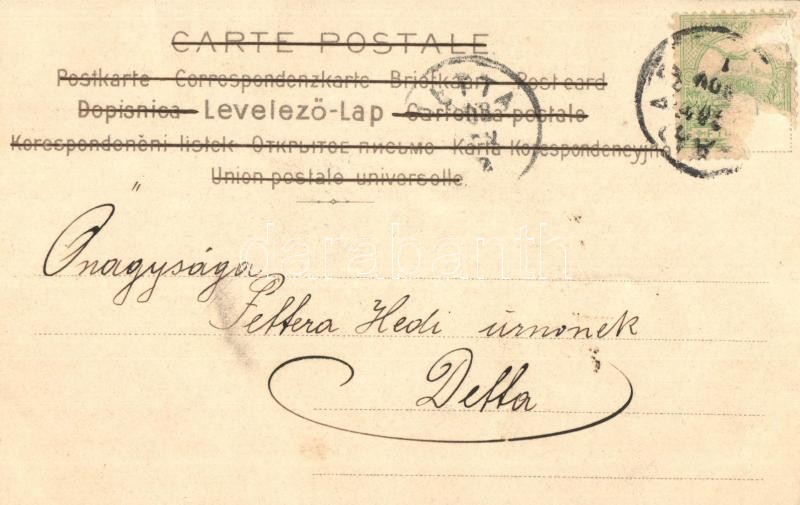 CARTE POSTALE
Postkarte Correspondenzkarte Briefkaart Post card
Dopisnica Levelező-Lap Cartolina postale
Korespondenční listek Открытое письмо Karta Korespondencyjna
Union postale universelle
Önagysága
Pettera Hedi úrnőnek
Detta
darabanth